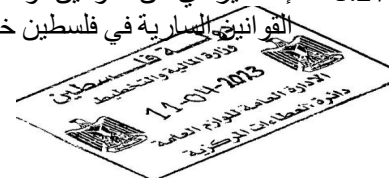 القوانين السارية في فلسطين
دولة فلسطين
وزارة المالية والتخطيط
11-04-2023
الإدارة العامة للوازم العامة
دائرة العطاءات المركزية